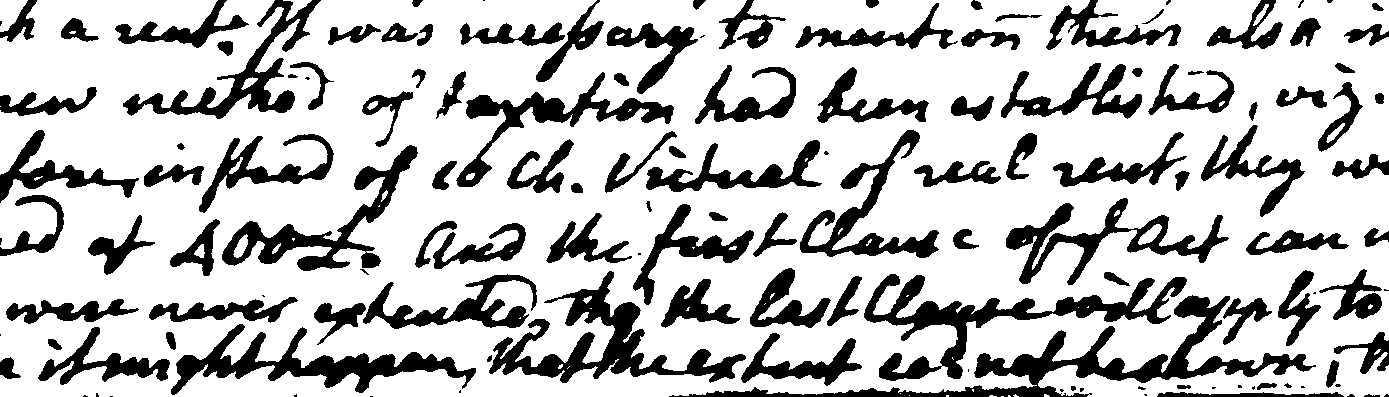 ch a rent. It was necessary to mention them also in
new method of taxation had been established, viz.
fore, instead of 10 Ch. Victual of real rent, they we
ed at 400£. And the first Clause of yͤ Act can n
were never extended, tho' the last Clause wōd apply to
it might happen, that the extent coͩ not be shown, th